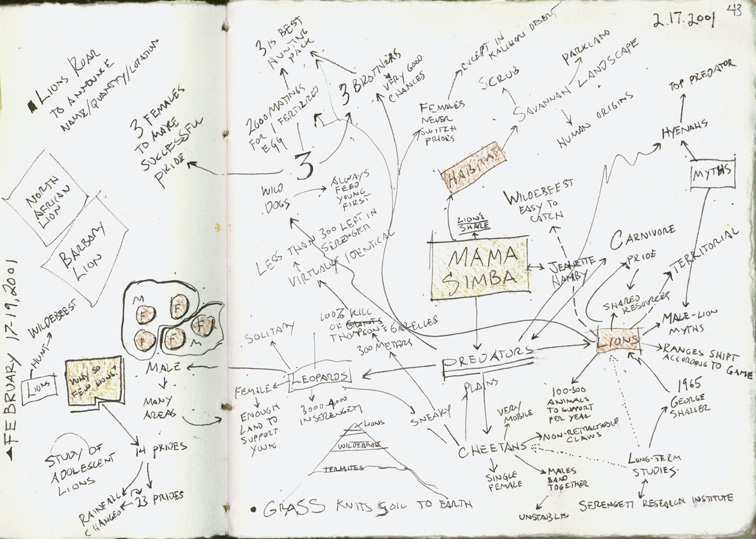 LIONS ROAR
TO ANNOUNCE
NAME/QUANTITY/LOCATION
3 FEMALES
TO MAKE
SUCCESSFUL
PRIDE
NORTH
AFRICAN
LION
BARBARY
LION
FEBRUARY 17-19, 2001
WILDEBEEST
HUNT
LIONS
WHY SO
FEW
M
F
F
F
F
F
M
MALE
MANY
AREAS
14 PRIDES
23 PRIDES
RAINFALL
CHANGED
STUDY OF
ADOLESCENT
LIONS
43
2.17.2001
3 IS BEST
HUNTING
PACK
2600 MATINGS
FOR 1 FERTILIZED
EGG
3 BROTHERS
VERY GOOD
CHANCES
3
WILD
DOGS
ALWAYS
FEED
YOUNG
FIRST
LESS THAN 300 LEFT IN
SERENGETI
VIRTUALLY IDENTICAL
EXCEPT IN
KALIHARI DESERT
FEMALES
NEVER
SWITCH
SCRUB
PARKLAND
SAVANNAH LANDSCAPE
HUMAN ORIGINS
HABITAT
TOP PREDATOR
HYENAHS
MYTHS
LION'S
SHARE
MAMA
SIMBA
WILDEBEEST
EASY TO
CATCH
JEANETTE
HANBY
CARNIVORE
PRIDE
SHARED
RESOURCES
TERRITORIAL
LIONS
MALE-LION
MYTHS
RANGES SHIFT
ACCORDING TO GAME
1965
GEORGE
SHALLER
LONG-TERM
STUDIES
SERENGETI RESEARCH INSTITUTE
100-300
ANIMALS
TO SUPPORT
PER YEAR
PREDATORS
PLAINS
CHEETAHS
SNEAKY
VERY
MOBILE
NON-RETRACTABLE
CLAWS
MALES
BAND
TOGETHER
UNSTABLE
SINGLE
FEMALE
LEOPARDS
SOLITARY
100% KILL
OF GRANTS
THOMPSON'S GAZELLES
300 METERS
FEMALE
ENOUGH
LAND TO
SUPPORT
YOUNG
3000-4000
IN SERENGETI
LIONS
WILDEBEEST
TERMITES
GRASS KNITS SOIL TO EARTH